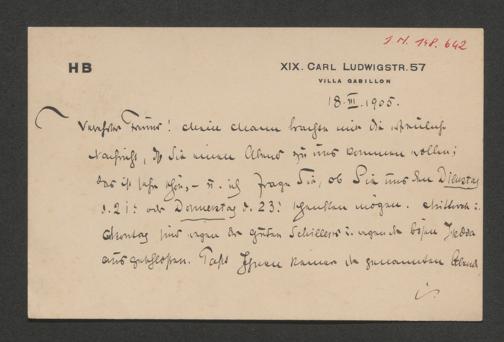 I.N. 148.642
HB
XIX. CARL LUDWIGSTR. 57
VILLA GABILLON
18. III. 1905.
Verehrter Freund! Mein Mann brachte mir die erfreuliche
Nachricht, dß Sie einen Abend zu uns kommen wollen;
das ist sehr schön, – u. ich frage Sie, ob Sie uns den Dienstag
d. 21: oder Donnerstag d. 23: schenken mögen. Mittwoch u.
Montag sind wegen der guten Schillers u. wegen der bösen Hedda
ausgeschlossen. Paßt Ihnen keiner der genannten Abende